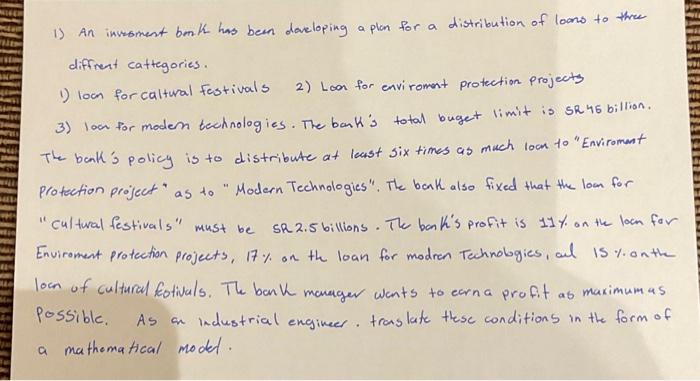 1) An invesment bank has been developing a plan for a distribution of loans to three
diffrent cattegories.
1) loan for caltural festivals 2) Loan for enviroment protection projects
3) loan for modern technologies. The bank's total buget limit is SR 46 billion.
The bank's policy is to distribute at least six times as much loan to "Enviroment
Protection project" as to "Modern Technologies". The bank also fixed that the loan for
"cultural festivals" must be SR 2.5 billions. The bank's profit is 11% on the loan for
Enviroment protection projects, 17% on th loan for modren Technologies, and 15% on the
loan of cultural fotivals. The bank manager wants to earn a profit as maximum as
Possible. As an industrial engineer. translate these conditions in the form of
a mathematical model.